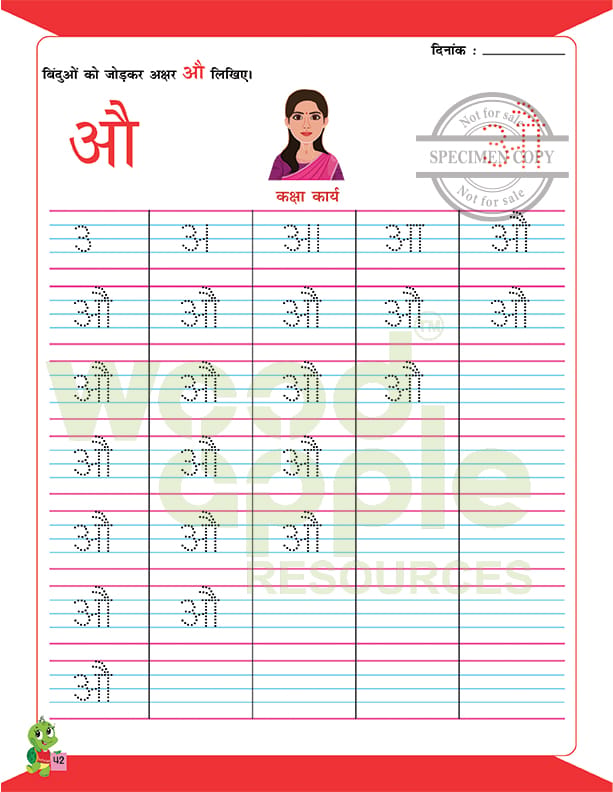 दिनांक : ________
बिंदुओं को जोड़कर अक्षर औ लिखिए।
औ
औ
Not for sale
SPECIMEN COPY
Not for sale
कक्षा कार्य
उ अ अा आ औ
औ औ औ औ औ
औ औ औ औ
औ औ औ
औ औ औ
औ औ
औ
wood
TM
apple
RESOURCES
५२